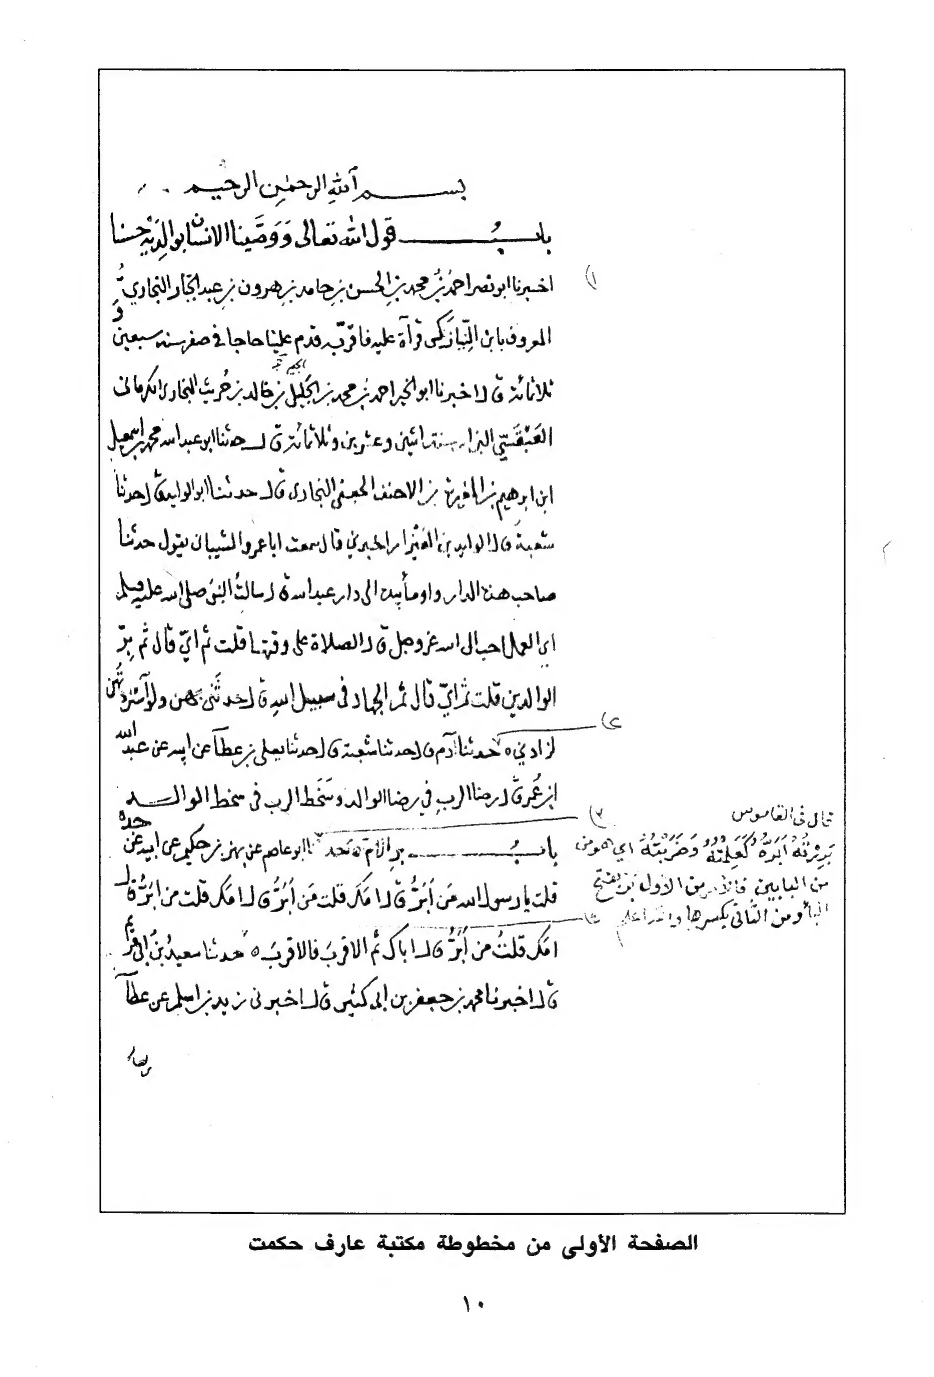 بسم الله الرحمن الرحيم
باب قول الله تعالى ووصينا الانسان بوالديه حسنا
اخبرنا ابو نصر احمد بن محمد بن الحسن بن حامد بن هرون بن عبد الجبار البخاري
المعروف بابن النيازكي قرآة عليه فاقر به قدم علينا حاجا في صفر سنه سبعين و
ثلاثمائة قال اخبرنا ابو الخير احمد بن محمد بن الجليل بن خالد بن حريث البخاري الكرماني
العبقسي البزار سنة اثنين وعشرين وثلاثمائة قال حدثنا ابو عبد الله محمد بن اسمعيل
ابن ابرهيم بن المغيرة بن الاحنف الجعفي البخاري قال حدثنا ابو الوليد قال حدثنا
شعبة قال الوليد بن العيزار اخبرني قال سمعت ابا عمرو الشيباني يقول حدثنا
صاحب هذه الدار واومأ بيده الى دار عبد الله قال سالت النبي صلى الله عليه وسلم
اي العمل احب الى الله عز وجل قال الصلاة على وقتها قلت ثم اي قال ثم بر
الوالدين قلت ثم اي قال ثم الجهاد في سبيل الله قال حدثني بهن ولو استزدته
لزادني ه حدثنا آدم قال حدثنا شعبة قال حدثنا يعلى بن عطآ عن ابيه عن عبد الله
ابن عمر قال رضا الرب في رضا الوالد وسخط الرب في سخط الوالد
باب بر الام ه حدثنا ابو عاصم عن بهز بن حكيم عن ابيه عن جده
قلت يا رسول الله من أبر قال امك قلت من أبر قال امك قلت من ابر قال
امك قلت من أبر قال اباك ثم الاقرب فالاقرب ه حدثنا سعيد بن ابي مريم
قال اخبرنا محمد بن جعفر بن ابي كثير قال اخبرني زيد بن اسلم عن عطآ
قال في القاموس
بررته ابره كعلمته وضربته اي هو من
من البابين فالامر من الاول بر بفتح
البأ ومن الثاني بكسرها والله اعلم
الصفحة الأولى من مخطوطة مكتبة عارف حكمت
١٠